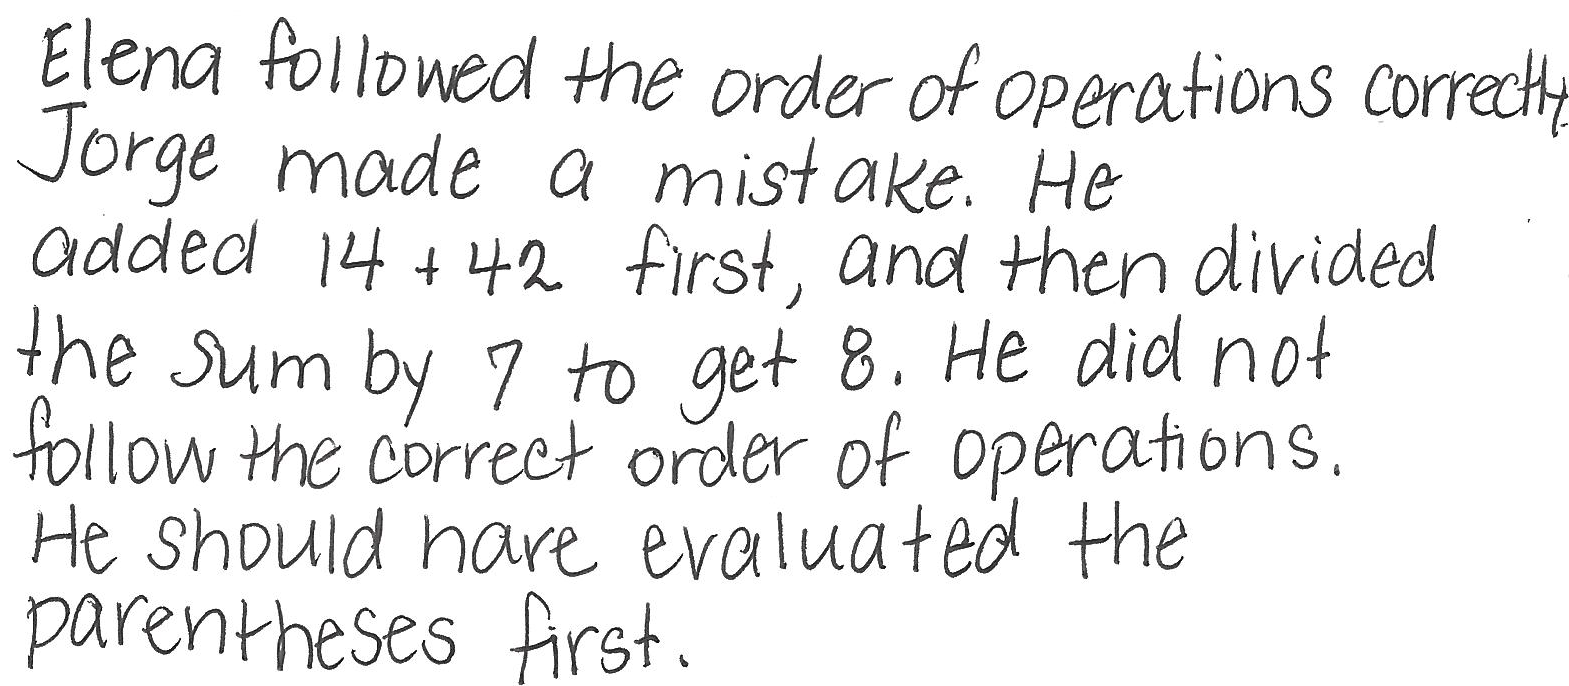 Elena followed the order of operations correctly.
Jorge made a mistake. He
added 14 + 42 first, and then divided
the sum by 7 to get 8. He did not
follow the correct order of operations.
He should have evaluated the
parentheses first.